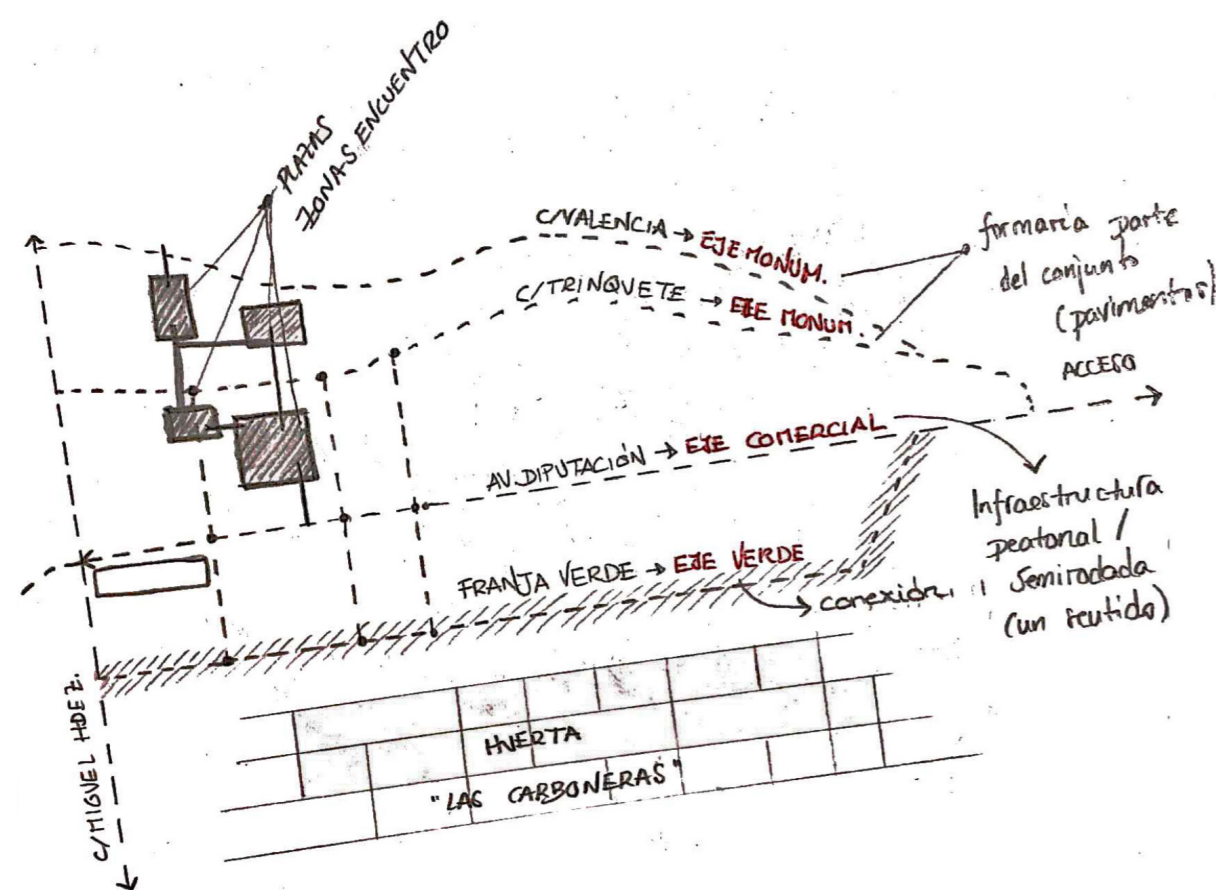 PLAZAS
ZONAS ENCUENTRO
C/VALENCIA → EJE MONUM.
C/TRINQUETE → EJE MONUM.
formaría parte
del conjunto
(pavimentos)
ACCESO
AV. DIPUTACIÓN → EJE COMERCIAL
Infraestructura
peatonal /
Semirodada
(un sentido)
FRANJA VERDE → EJE VERDE
conexión
C/MIGUEL HDEZ.
HUERTA
"LAS CARBONERAS"